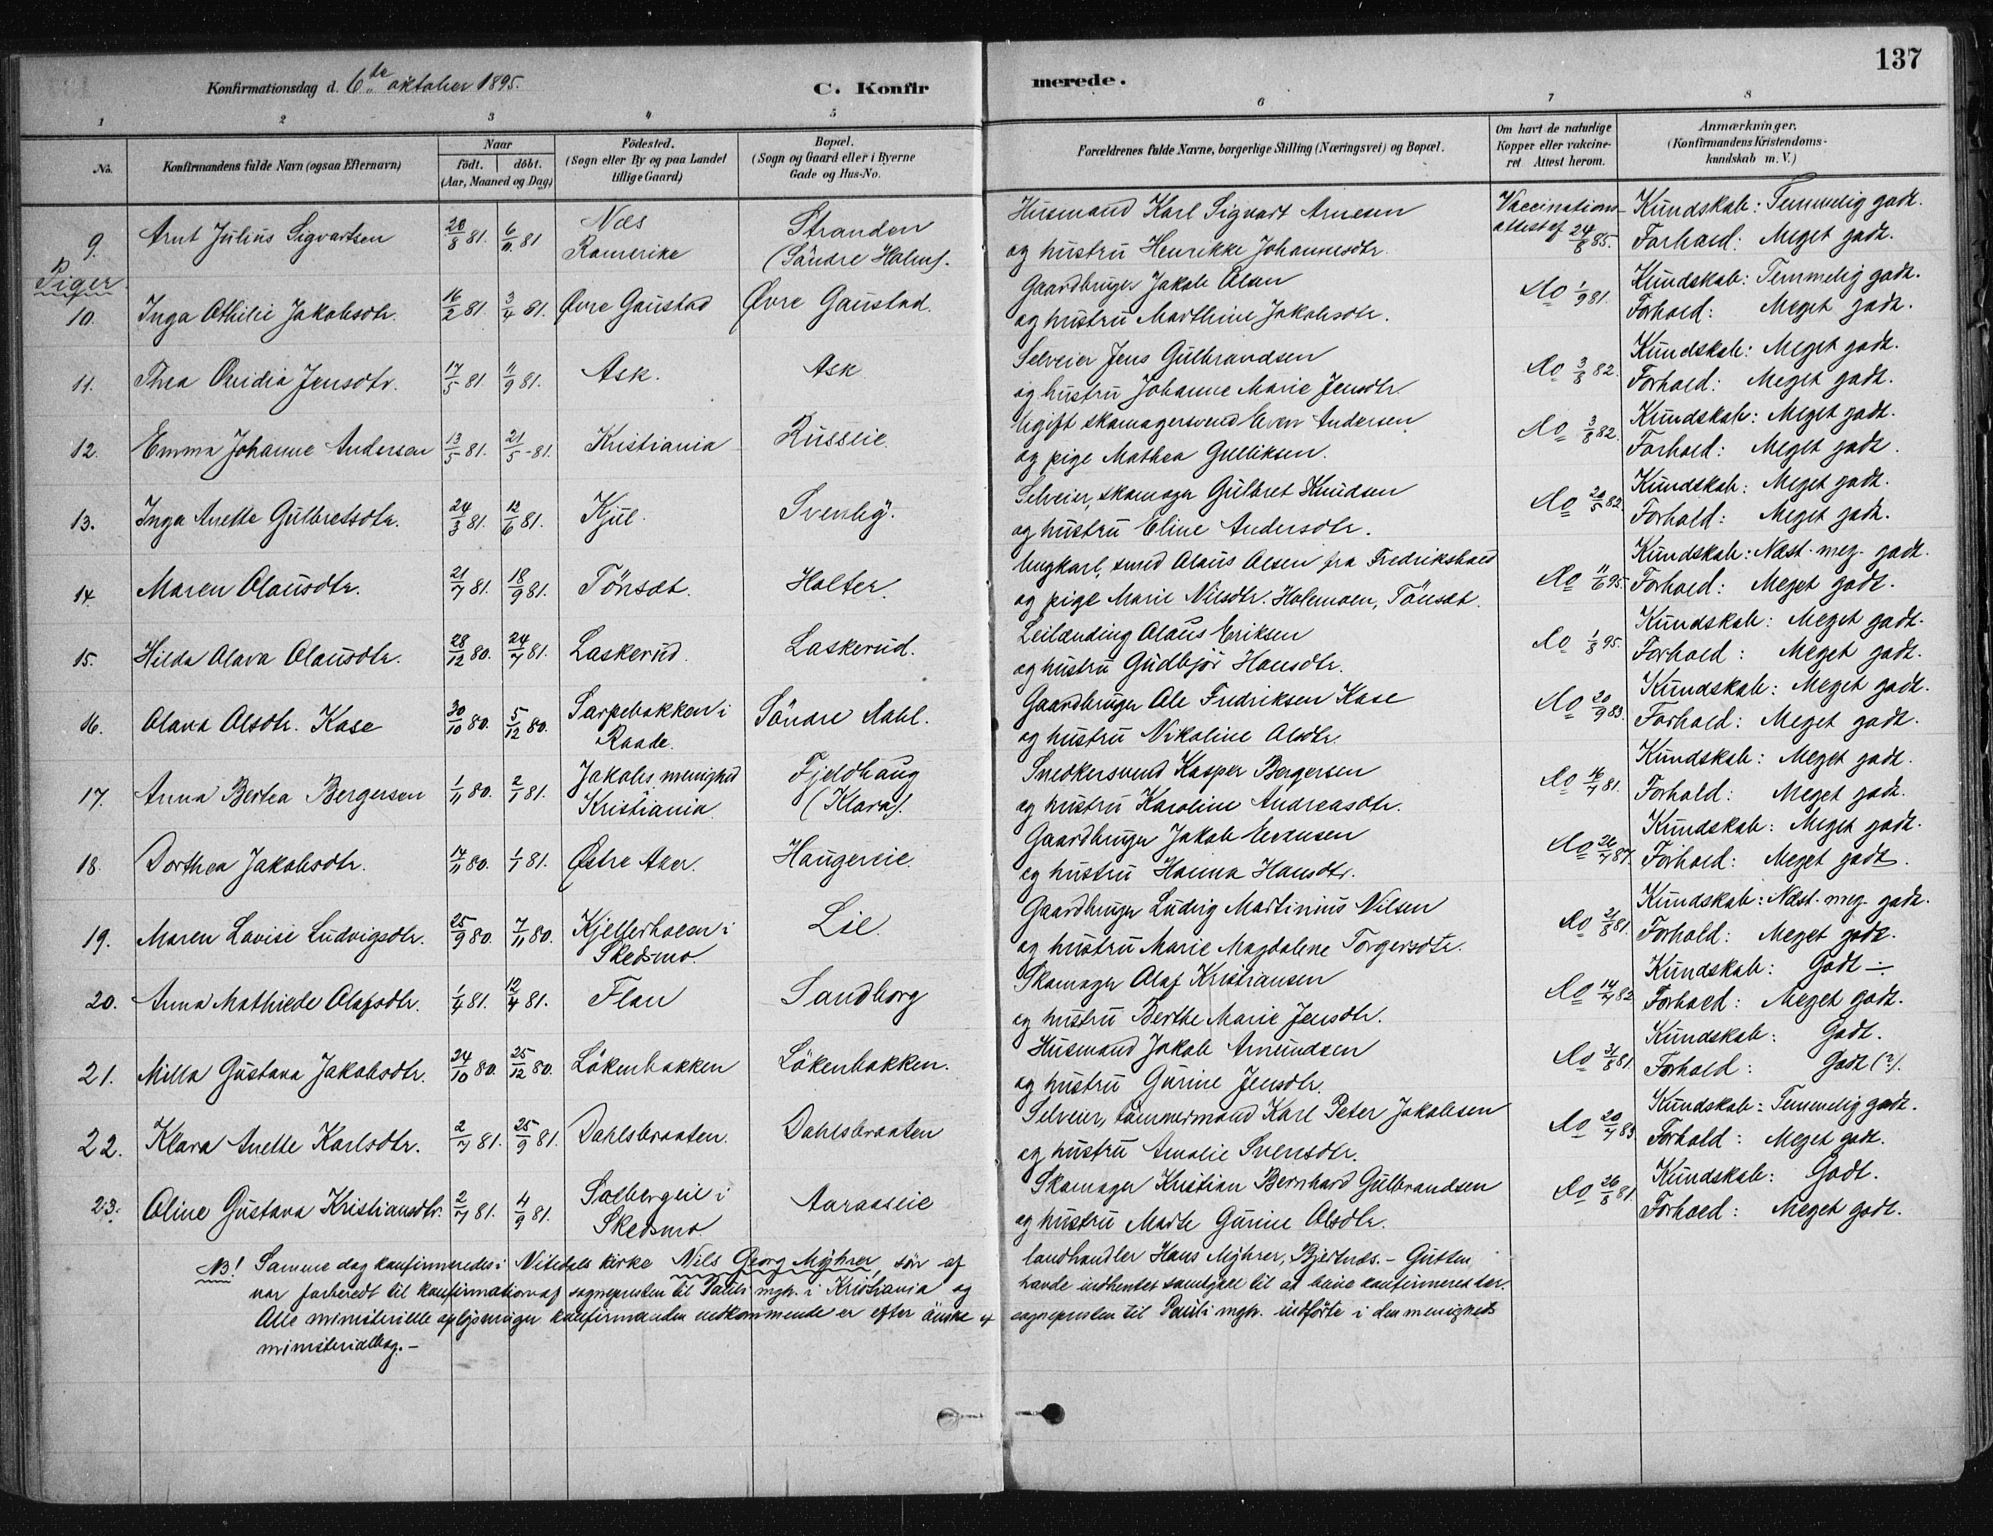 137
Konfirmationsdag d. 6te oktober 1895.
C. Konfir merede.
1 2 3 4 5 6 7 8
No.
Konfirmandens fulde Navn (ogsaa Efternavn)
Naar
födt. döbt.
(Aar, Maaned og Dag.)
Födested.
(Sogn eller By og paa Landet
tillige Gaard.)
Bopæl.
(Sogn og Gaard eller i Byerne
Gade og Hus-No.
Forældrenes fulde Navne, borgerlige Stilling (Næringsvei) og Bopæl.
Om havt de naturlige
Kopper eller vakcine-
ret. Attest herom.
Anmærkninger.
(Konfirmandens Kristendoms-
kundskab m. V.)
9. Arnt Julius Sigvartsen 20/8 81. 6/11 81 Næs Romerike Stranden (Söndre Holm).
Husmand Karl Sigvart Arnesen
og hustru Henrikke Johannesdtr.
Vaccinations-
attest af 24/8 85.
Kundskab: Temmelig godt.
Forhold: Meget godt.
Piger
10. Inga Othilie Jakobsdtr. 16/2 81 3/4 81. Øvre Gaustad Øvre Gaustad.
Gaardbruger Jakob Olsen
og hustru Marthine Jakobsdtr.
Do 1/9 81.
Kundskab: Temmelig godt.
Forhold: Meget godt.
11. Thea Ovidia Jensdtr. 17/5 81 11/9 81. Ask. Ask
Selveier Jens Gulbrandsen
og hustru Johanne Marie Jensdtr.
Do 3/8 82.
Kundskab: Meget godt.
Forhold: Meget godt.
12. Emma Johanne Andersen 13/5 81. 21/5 - 81. Kristiania Russeie
Ugift skomagersvend Even Andersen
og pige Mathea Gulliksen.
Do 3/8 82.
Kundskab: Meget godt.
Forhold: Meget godt.
13. Inga Anette Gulbretsdtr. 24/3 81. 12/6 81. Kjul. Svenby.
Selveier, skomager Gulbret Knudsen
og hustru Eline Andersdtr.
Do 20/5 82.
Kundskab: Meget godt.
Forhold: Meget godt.
14. Maren Olausdtr. 21/7 81. 18/9 81. Tönsæt. Holter.
Ungkarl, smed Olaus Olsen fra Fredrikshald
og pige Marie Nilsdtr. Holemoen, Tönsæt.
Do 11/6 95.
Kundskab: Næst. meg. godt.
Forhold: Meget godt.
15. Hilda Olava Olausdtr. 28/12 80. 24/7 81. Laskerud. Laskerud.
Leilænding Olaus Eriksen
og hustru Gudbjör Hansdtr.
Do 1/8 95.
Kundskab: Meget godt.
Forhold: Meget godt.
16. Olava Olsdtr. Kase 30/10 80. 5/12 80. Sarpebakken i Raade. Söndre Aahl.
Gaardbruger Ole Fredriksen Kase
og hustru Nikoline Olsdtr.
Do 20/9 83.
Kundskab: Meget godt.
Forhold: Meget godt.
17. Anna Bertea Bergersen 1/11 80. 2/1 81. Jakobs menighed Kristiania Fjeldhaug (Klara).
Snedkersvend Kasper Bergersen
og hustru Karoline Andreasdtr.
Do 16/7 81.
Kundskab: Meget godt.
Forhold: Meget godt.
18. Dorthea Jakobsdtr. 14/11 80. 1/1 81. Østre Aker. Haugereie
Gaardbruger Jakob Evensen
og hustru Hanna Hansdtr.
Do 26/7 87.
Kundskab: Meget godt.
Forhold: Meget godt.
19. Maren Lovise Ludvigsdtr. 25/9 80. 7/11 80. Kjellerholen i Skedsmo. Lie
Gaardbruger Ludvig Martinius Nilsen
og hustru Marie Magdalene Torgersdtr.
Do 21/8 81.
Kundskab: Næst. meg. godt.
Forhold: Meget godt.
20. Anna Mathilde Olafsdtr. 1/4 81. 12/4 81. Flan Sandborg
Skomager Olaf Kristiansen
og hustru Berthe Marie Jensdtr.
Do 14/7 82.
Kundskab: Godt ÷.
Forhold: Meget godt.
21. Milla Gustava Jakobsdtr. 24/10 80. 25/12 80. Lökenbakken Lökenbakken.
Husmand Jakob Amundsen
og hustru Gurine Jensdtr.
Do 31/8 81.
Kundskab: Godt.
Forhold: Godt (?).
22. Klara Anette Karlsdtr. 2/7 81. 25/9 81. Dahlsbraaten. Dahlsbraaten
Selveier, tömmermand Karl Peter Jakobsen
og hustru Amalie Svensdtr.
Do 20/7 83.
Kundskab: Temmelig godt.
Forhold: Meget godt.
23. Oline Gustava Kristiansdtr. 2/7 81. 4/9 81. Solbergeie i Skedsmo Aaraaseie
Skomager Kristian Bernhard Gulbrandsen
og hustru Marte Gurine Olsdtr.
Do 26/8 81
Kundskab: Godt.
Forhold: Meget godt.
NB! Samme dag konfirmeredes i Nitedals kirke Nils Georg Myhrer, sön af landhandler Hans Myhrer, Bjertnæs. - Gutten
var forberedt til konfirmation af sognepresten til Pauli mgh. i Kristiania og havde indhentet samtykke til at blive konfirmeret her.
Alle ministerielle oplysninger konfirmanden vedkommende er efter önske af sognepresten til Pauli mgh. indförte i den menigheds
ministerialbog. -